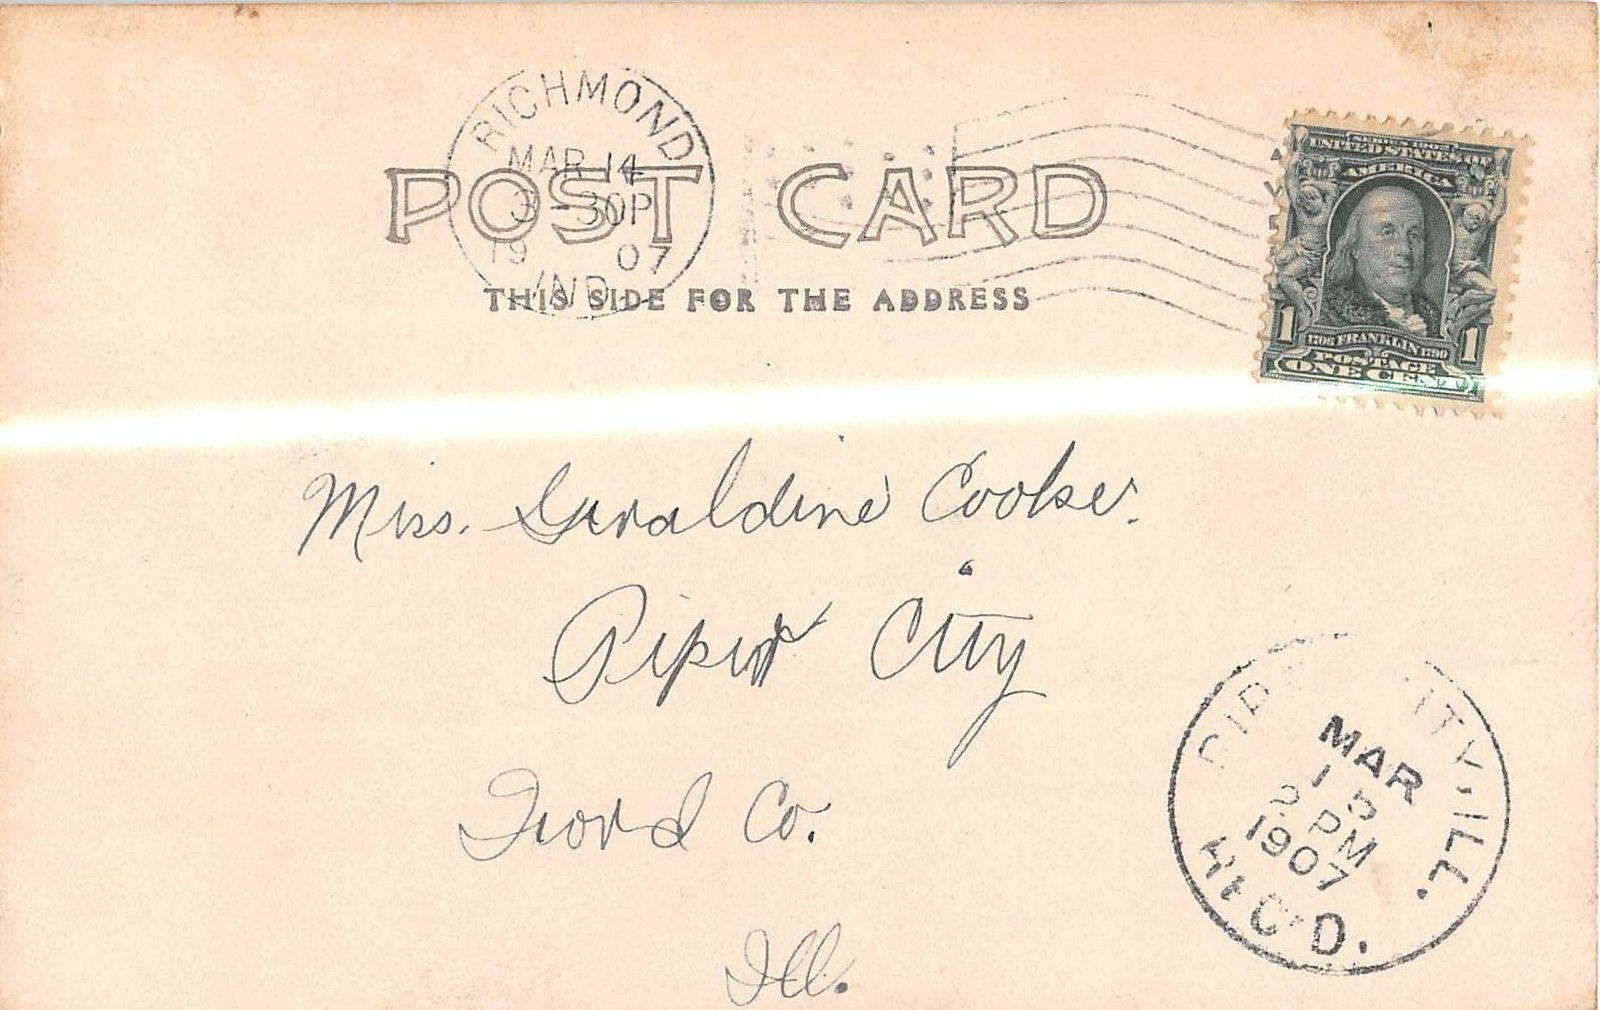 RICHMOND
MAR 14
3-30P
1907
IND.
POST CARD
THIS SIDE FOR THE ADDRESS
UNITED STATES OF
AMERICA
1706 FRANKLIN 1790
1 POSTAGE 1
ONE CENT
Miss. Geraldine Cooke.
Piper City
Ford Co.
Ill.
PIPER CITY, ILL.
MAR
15
2 PM
1907
REC'D.